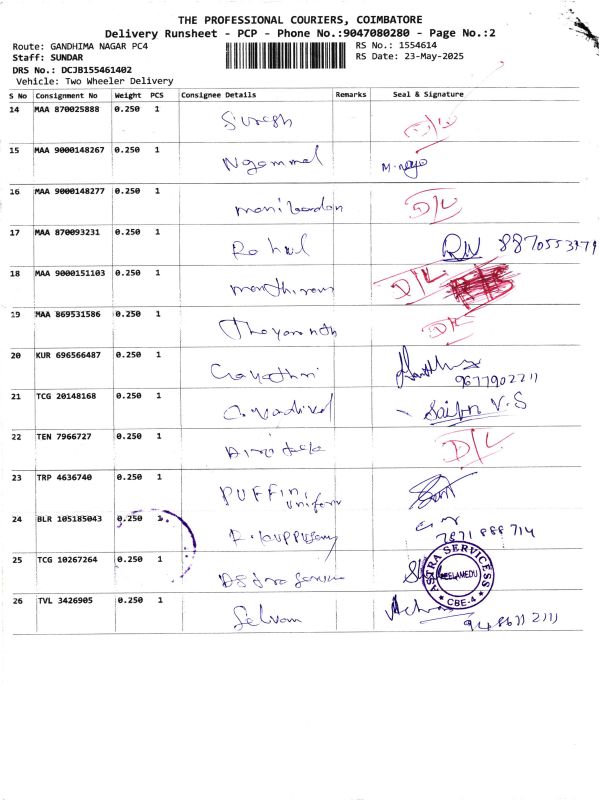 THE PROFESSIONAL COURIERS, COIMBATORE
Delivery Runsheet - PCP - Phone No.:9047080280 - Page No.:2
Route: GANDHIMA NAGAR PC4 RS No.: 1554614
Staff: SUNDAR RS Date: 23-May-2025
DRS No.: DCJB155461402
Vehicle: Two Wheeler Delivery
S No Consignment No Weight PCS Consignee Details Remarks Seal & Signature
14 MAA 870025888 0.250 1
Suresh D/L
15 MAA 9000148267 0.250 1
Ngammal
16 MAA 9000148277 0.250 1
D/L
17 MAA 870093231 0.250 1
Rahul
18 MAA 9000151103 0.250 1
D/L
19 MAA 869531586 0.250 1
D/L
20 KUR 696566487 0.250 1
Gayathri
9677902211
21 TCG 20148168 0.250 1
V.S
22 TEN 7966727 0.250 1
D/L
23 TRP 4636740 0.250 1
PUFFIN
uniform
24 BLR 105185043 0.250 1
7871888714
25 TCG 10267264 0.250 1
ASTRA SERVICESS
PEELAMEDU
CBE-4
26 TVL 3426905 0.250 1
Selvam